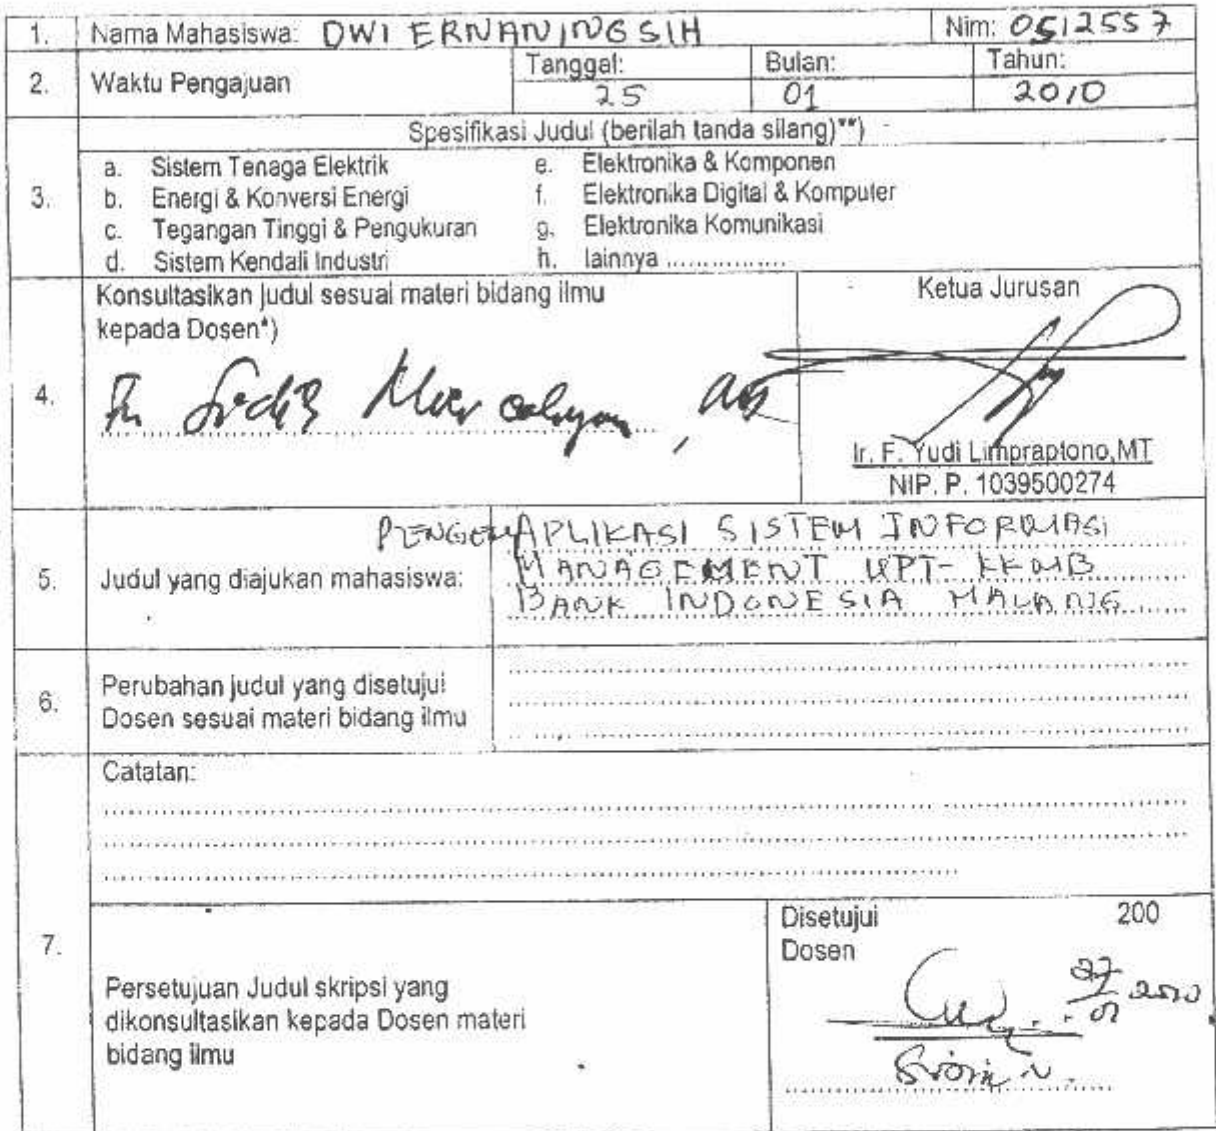 1. Nama Mahasiswa: DWI ERNANINGSIH Nim: 0512557
2. Waktu Pengajuan Tanggal: Bulan: Tahun:
25 01 2010
Spesifikasi Judul (berilah tanda silang)**)
3.
a. Sistem Tenaga Elektrik e. Elektronika & Komponen
b. Energi & Konversi Energi f. Elektronika Digital & Komputer
c. Tegangan Tinggi & Pengukuran g. Elektronika Komunikasi
d. Sistem Kendali Industri h. lainnya ................
4.
Konsultasikan judul sesuai materi bidang ilmu
kepada Dosen*)
Ketua Jurusan
Ir. F. Yudi Limpraptono,MT
NIP. P. 1039500274
5. Judul yang diajukan mahasiswa:
APLIKASI SISTEM INFORMASI
MANAGEMENT UPT-KKMB
BANK INDONESIA MALANG
6.
Perubahan judul yang disetujui
Dosen sesuai materi bidang ilmu
Catatan:
7.
Persetujuan Judul skripsi yang
dikonsultasikan kepada Dosen materi
bidang ilmu
Disetujui 200
Dosen
27/01 2010